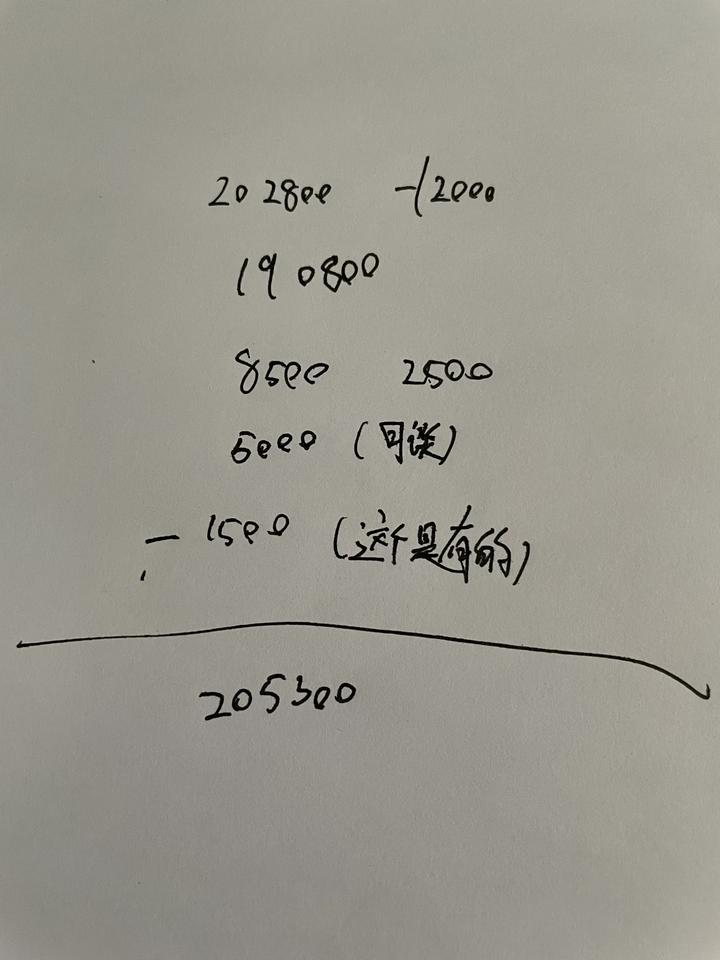 202800 -12000
190800
8500 2500
5000 (可谈)
- 1500 (这个是有的)
205300